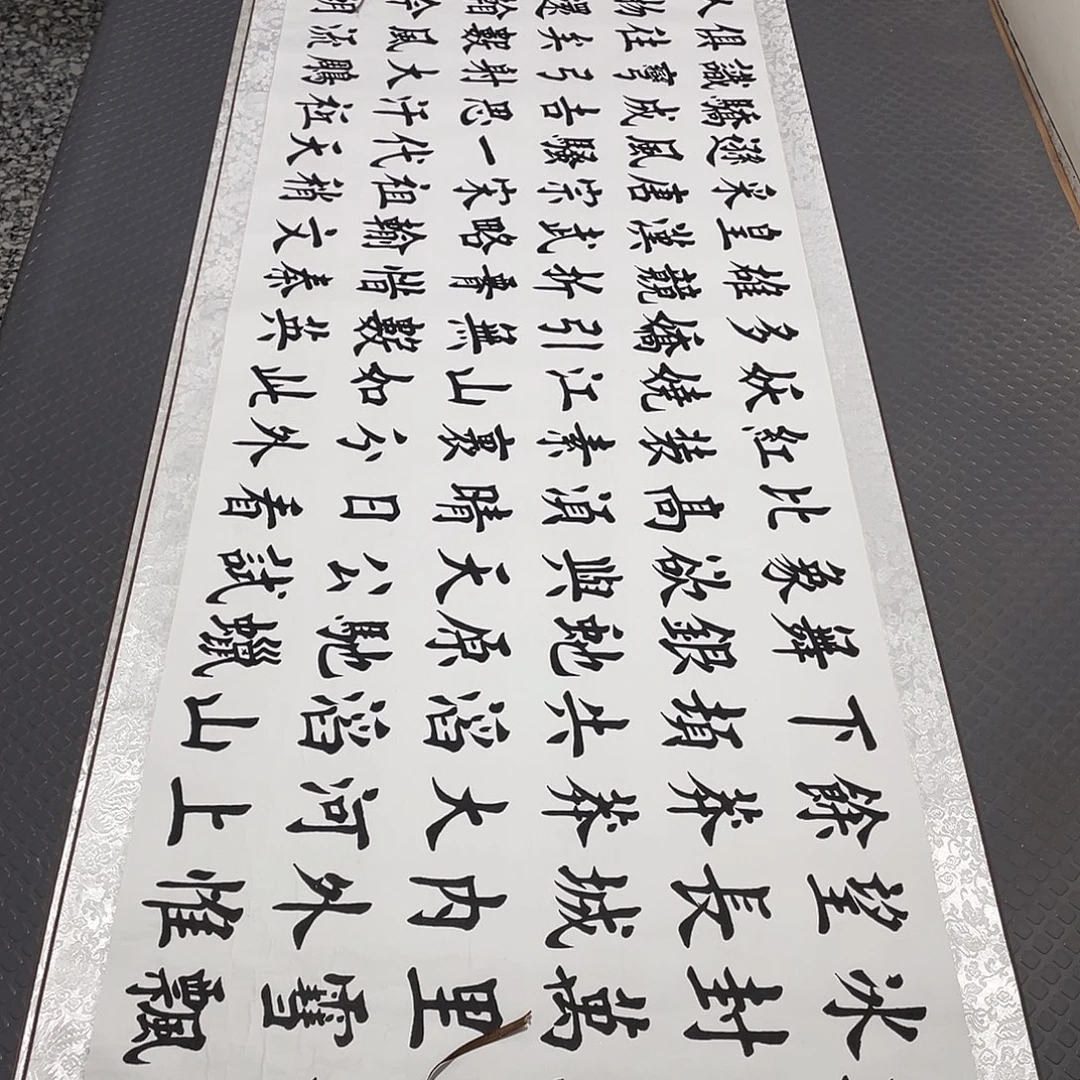 冰封萬里雪飄
望長城内外惟
餘莽莽大河上
下頓失滔滔山
舞銀蛇原馳蠟
象欲與天公試
比高須晴日看
紅裝素裹分外
妖嬈江山如此
多嬌引無數英
雄競折腰惜秦
皇漢武略輸文
采唐宗宋祖稍
遜風騷一代天
驕成吉思汗祗
識彎弓射大鵰
俱往矣數風流
物還今